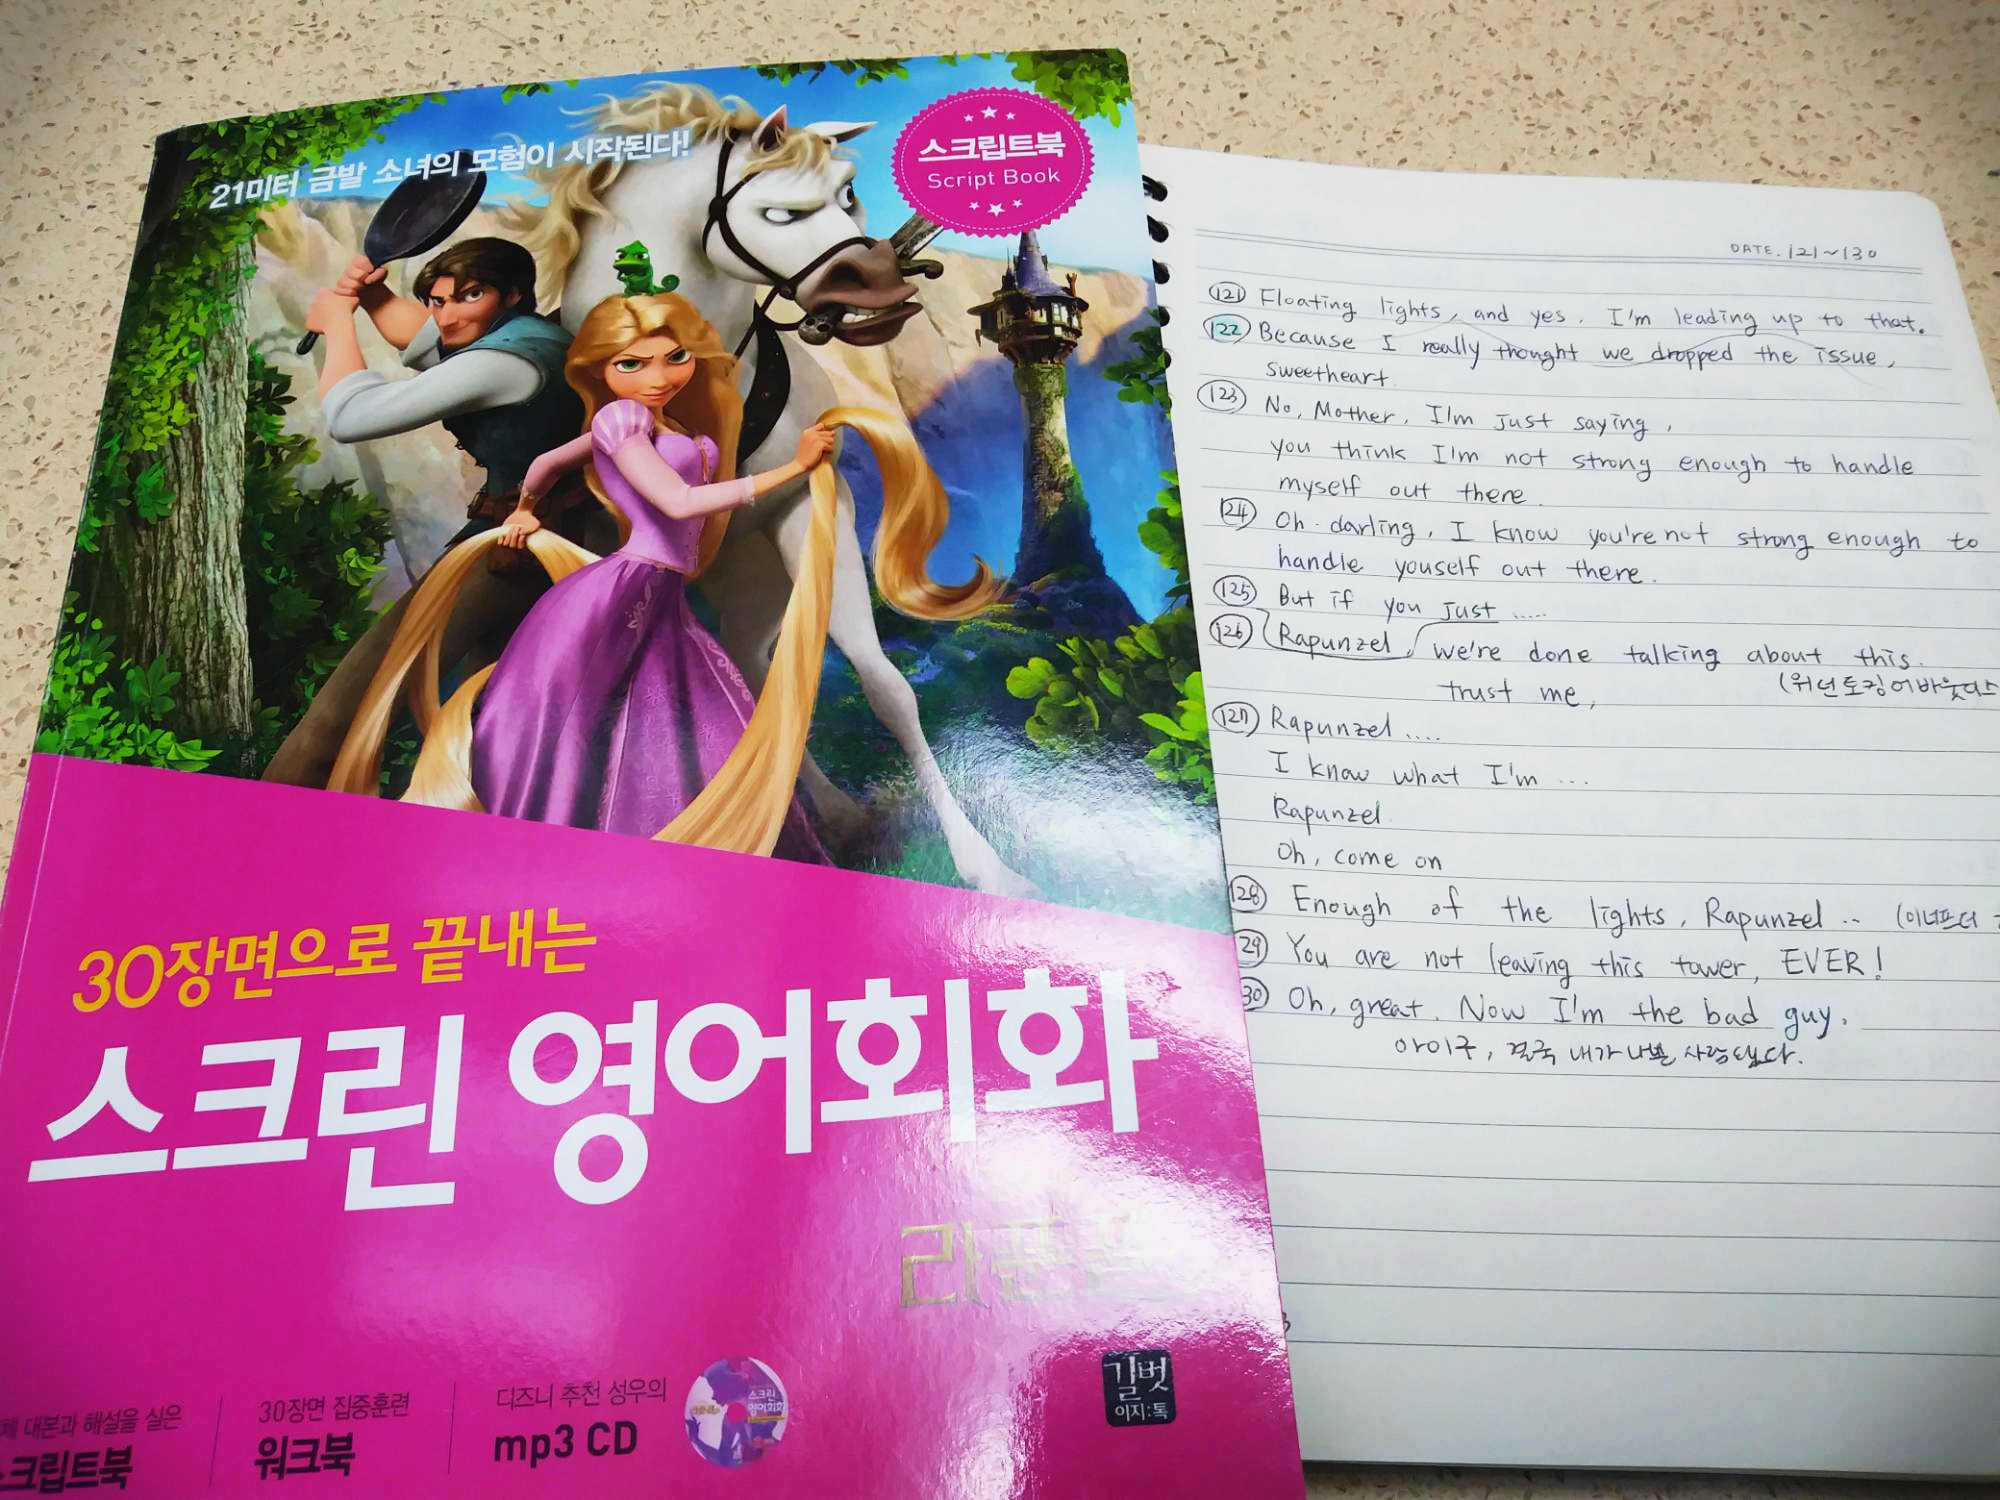 21미터 금발 소녀의 모험이 시작된다!
스크립트북
Script Book
30장면으로 끝내는
스크린 영어회화
라푼젤
체 대본과 해설을 실은
스크립트북
30장면 집중훈련
워크북
디즈니 추천 성우의
mp3 CD
스크린
영어회화
길벗
이지:톡
DATE. 121~130
121 Floating lights, and yes. I'm leading up to that.
122 Because I really thought we dropped the issue,
sweetheart.
123 No, Mother. I'm just saying,
you think I'm not strong enough to handle
myself out there.
124 Oh. darling, I know you're not strong enough to
handle youself out there.
125 But if you just .....
126 Rapunzel, we're done talking about this.
(위던토킹어바웃디스
trust me,
127 Rapunzel ....
I know what I'm ...
Rapunzel.
Oh, come on
128 Enough of the lights, Rapunzel .. (이너프더
29 You are not leaving this tower, EVER!
30 Oh, great. Now I'm the bad guy.
아이구, 결국 내가 나쁜 사람 됐다.